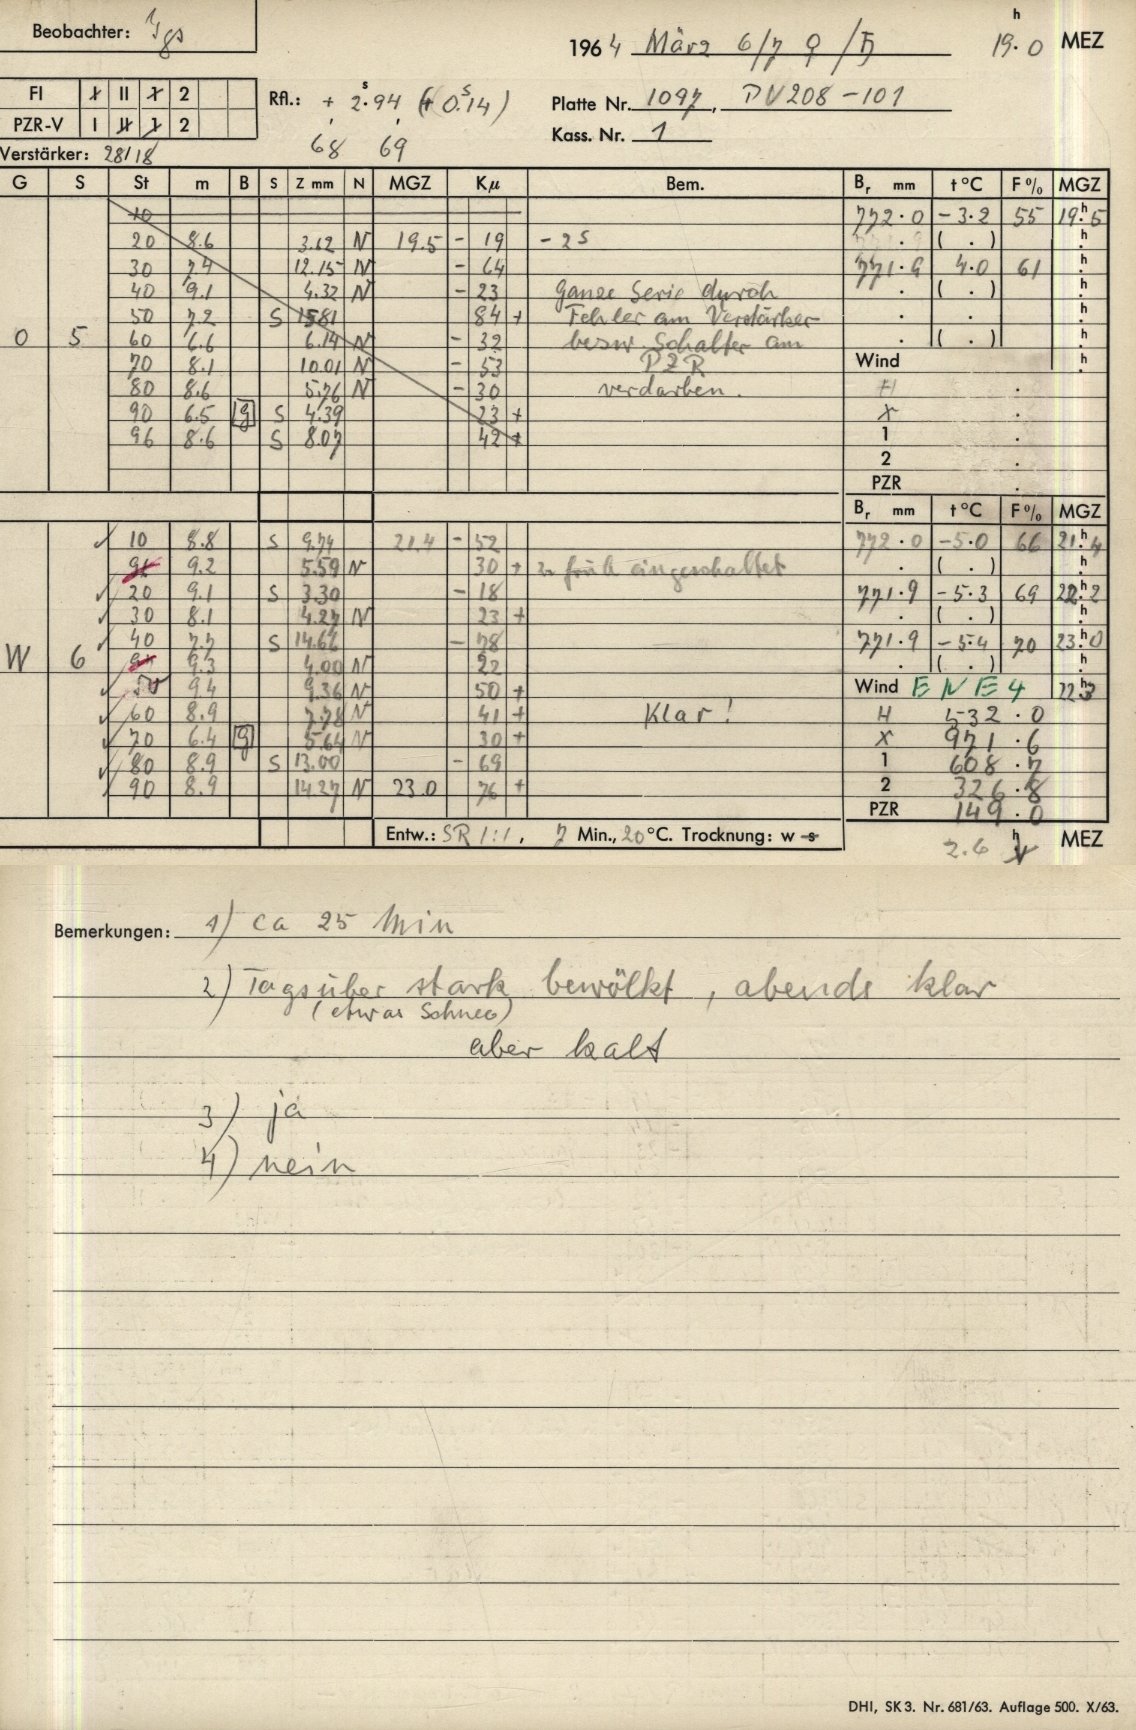 Beobachter: Ygs
1964 März 6/7 ♀/♄ 19.h0 MEZ
FI X II X 2
PZR-V I II 1 2
Rfl.: + 2.s94 (+ 0.s14)
68 69
Platte Nr. 1097, PV208-101
Kass. Nr. 1
Verstärker: 28/18
G S St m B S Z mm N MGZ Kμ Bem. Br mm t °C F % MGZ
10 772.0 -3.2 55 19.h5
20 8.6 3.62 N 19.5 - 19 - 2s . ( . ) h
30 7.4 12.15 N - 64 771.9 4.0 61 h
40 9.1 4.32 N - 23 Ganze Serie durch . ( . ) h
50 7.2 S 15.81 84 + Fehler am Verstärker . . h
O 5 60 6.6 6.14 N - 32 bezw. Schalter am . ( . ) h
70 8.1 10.01 N - 53 PZR Wind h
80 8.6 5.76 N - 30 verdorben. H .
90 6.5 g S 4.39 23 + X .
96 8.6 S 8.07 42 + 1 .
2 .
PZR .
Br mm t °C F % MGZ
10 8.8 S 9.74 21.4 - 52 772.0 -5.0 66 21.h4
9.2 5.59 N 30 + zu früh eingeschaltet . ( . ) h
20 9.1 S 3.30 - 18 771.9 -5.3 69 22.h2
30 8.1 4.27 N 23 + . ( . ) h
40 7.7 S 14.66 - 78 771.9 -5.4 70 23.h0
W 6 9.3 4.00 N 22 . ( . ) h
50 9.4 9.36 N 50 + Wind ENE4 22.h3
60 8.9 7.78 N 41 + Klar! H 532.0
70 6.4 g 5.64 N 30 + X 971.6
80 8.9 S 13.00 - 69 1 608.7
90 8.9 14.27 N 23.0 76 + 2 326.8
PZR 149.0
Entw.: SR 1:1, 7 Min., 20 °C. Trocknung: w s 2.6 h MEZ
Bemerkungen: 1) ca 25 Min
2) Tagsüber stark bewölkt, abends klar
(etwas Schnee)
aber kalt
3) ja
4) nein
DHI, SK 3. Nr. 681/63. Auflage 500. X/63.